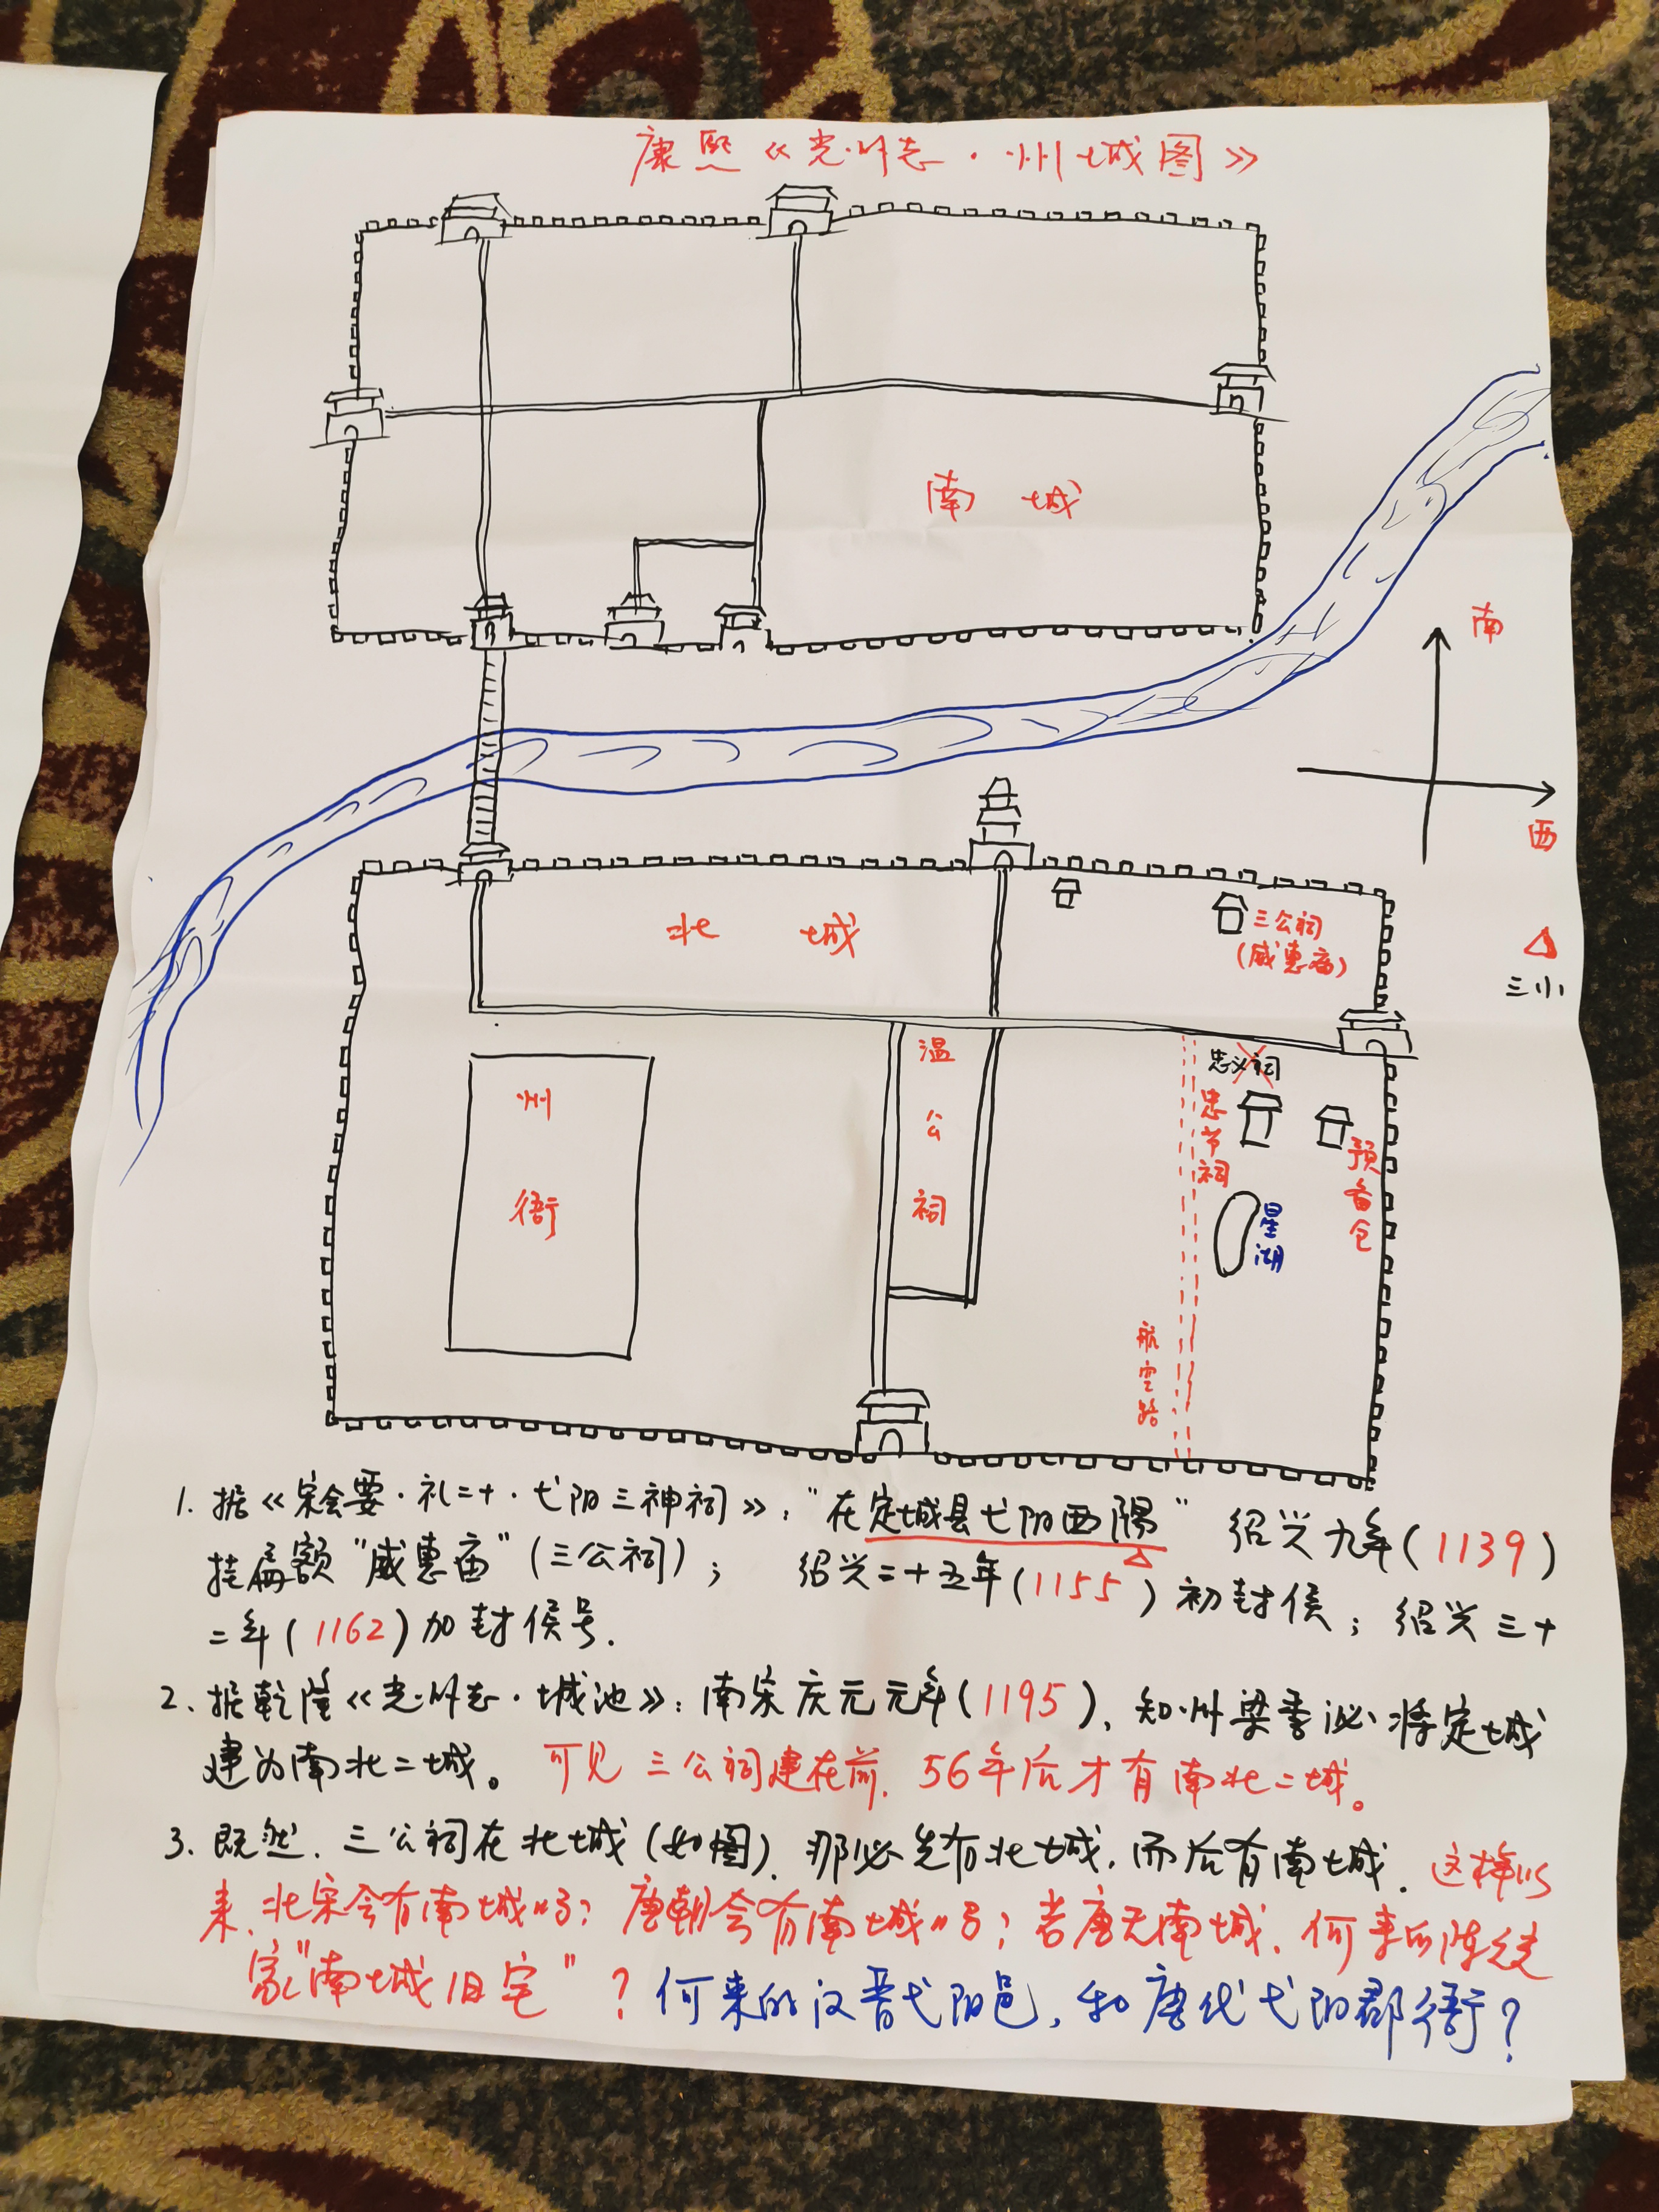 康熙《光州志·州城图》
南城
南
西
北城
三公祠
(威惠庙)
三小
温公祠
忠义祠
忠节祠
预备仓
星湖
州衙
航空路
1. 据《宋会要·礼二十·弋阳三神祠》："在定城县弋阳西隅" 绍兴九年(1139)
挂扁额"威惠庙"(三公祠)； 绍兴二十五年(1155)初封侯；绍兴三十
二年(1162)加封侯号.
2. 据乾隆《光州志·城池》：南宋庆元元年(1195)，知州梁季泌将定城
建为南北二城。可见三公祠建在前，56年后才有南北二城。
3. 既然，三公祠在北城(如图)，那必先有北城，而后有南城. 这样以
来，北宋会有南城吗？唐朝会有南城吗？若唐无南城，何来的陈氏
家"南城旧宅"？何来的汉晋弋阳邑，和唐代弋阳郡衙？